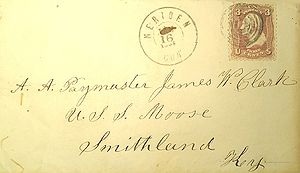 MERIDEN
16
CON
3 3
A. A. Paymaster James W. Clark
U. S. S. Moose
Smithland
Ky